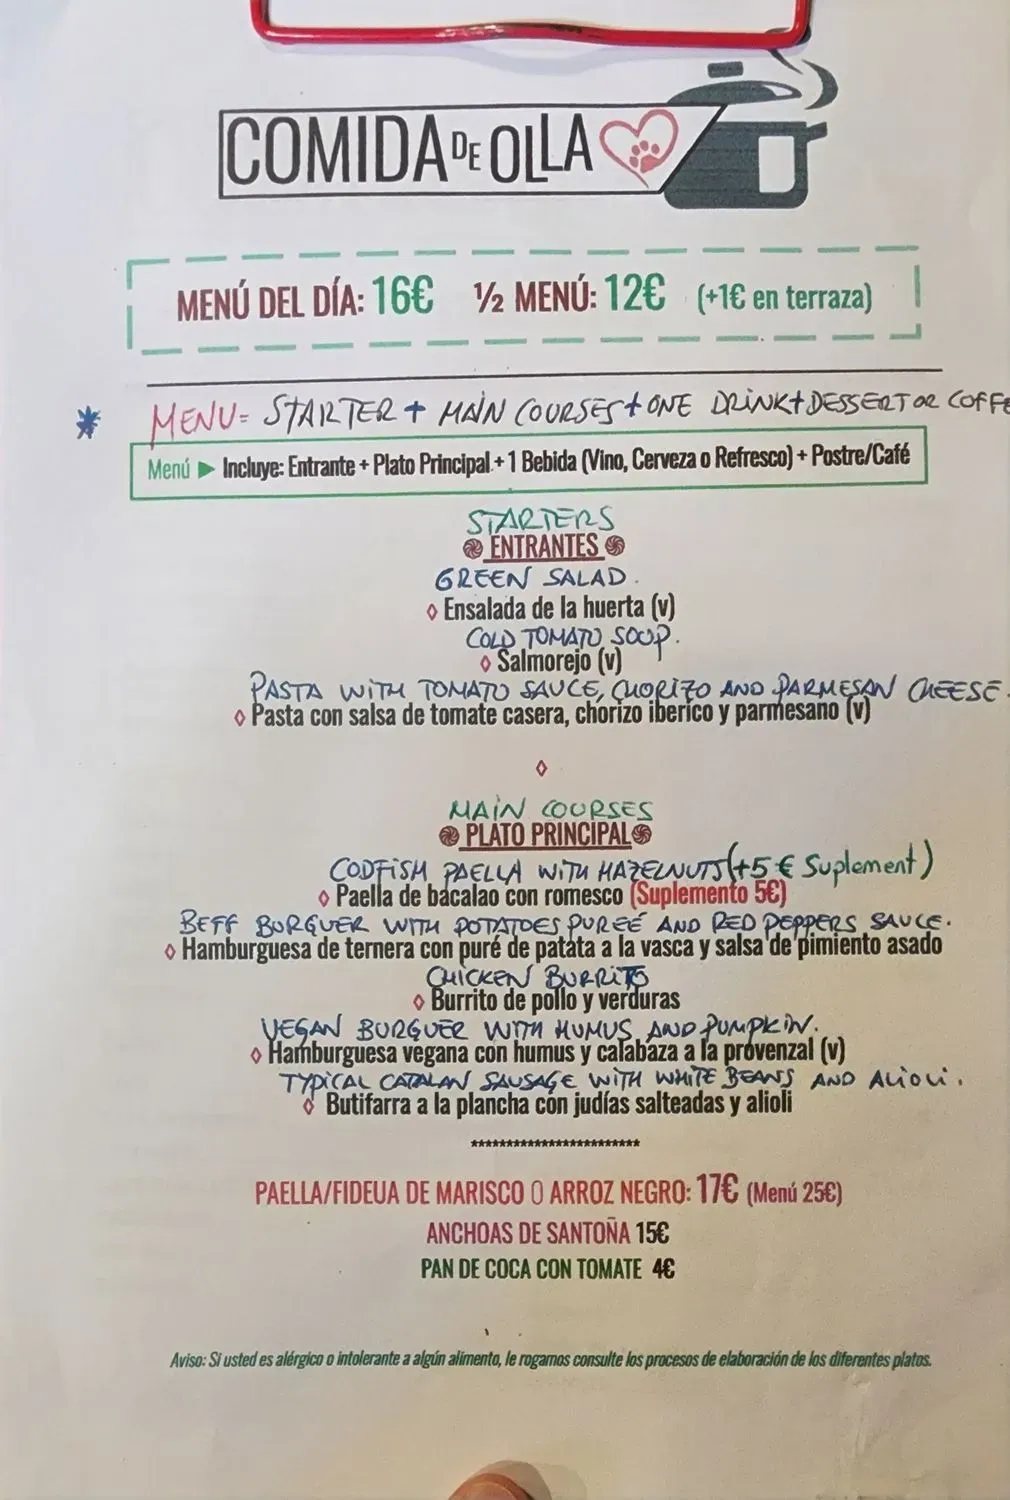 COMIDA DE OLLA
MENÚ DEL DÍA: 16€ ½ MENÚ: 12€ (+1€ en terraza)
* MENU= STARTER + MAIN COURSES + ONE DRINK + DESSERT OR COFFE
Menú ▶ Incluye: Entrante + Plato Principal + 1 Bebida (Vino, Cerveza o Refresco) + Postre/Café
STARTERS
ENTRANTES
GREEN SALAD.
◊ Ensalada de la huerta (v)
COLD TOMATO SOUP.
◊ Salmorejo (v)
PASTA WITH TOMATO SAUCE, CHORIZO AND PARMESAN CHEESE.
◊ Pasta con salsa de tomate casera, chorizo iberico y parmesano (v)
◊
MAIN COURSES
PLATO PRINCIPAL
CODFISH PAELLA WITH HAZELNUTS (+5€ Suplement)
◊ Paella de bacalao con romesco (Suplemento 5€)
BEFF BURGUER WITH POTATOES PUREÉ AND RED PEPPERS SAUCE.
◊ Hamburguesa de ternera con puré de patata a la vasca y salsa de pimiento asado
CHICKEN BURRITO
◊ Burrito de pollo y verduras
VEGAN BURGUER WITH HUMUS AND PUMPKIN.
◊ Hamburguesa vegana con humus y calabaza a la provenzal (v)
TYPICAL CATALAN SAUSAGE WITH WHITE BEANS AND ALIOLI.
◊ Butifarra a la plancha con judías salteadas y alioli
************************
PAELLA/FIDEUA DE MARISCO O ARROZ NEGRO: 17€ (Menú 25€)
ANCHOAS DE SANTOÑA 15€
PAN DE COCA CON TOMATE 4€
Aviso: Si usted es alérgico o intolerante a algún alimento, le rogamos consulte los procesos de elaboración de los diferentes platos.